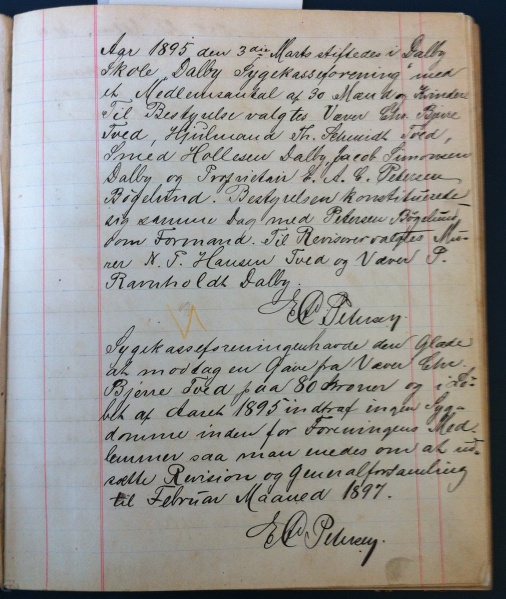 Aar 1895 den 3die Marts stiftedes i Dalby
Skole „Dalby Sygekasseforening" med
et Medlemsantal af 30 Mænd og Kvinder
Til Bestyrelse valgtes Væver Chr. Bjerre
Tved, Hjulmand Th. Schmidt Tved,
Smed Hollesen Dalby, Jacob Simonsen
Dalby og Proprietair E. A. C. Petersen
Bøgelund. Bestyrelsen konstituerede
sig samme Dag med Petersen Bøgelund
som Formand. Til Revisorer valgtes Mu-
rer N. P. Hansen Tved og Væver P.
Ravnholdt Dalby.
Petersen.
Sygekasseforeningen havde den Glæde
at modtag en Gave fra Væver Chr.
Bjerre Tved paa 80 Kroner og i Lø-
bet af Aaret 1895 indtraf ingen Syg-
domme inden for Foreningens Med-
lemmer saa man enedes om at ud-
sætte Revision og Generalforsamling
til Februar Maaned 1897.
Petersen.